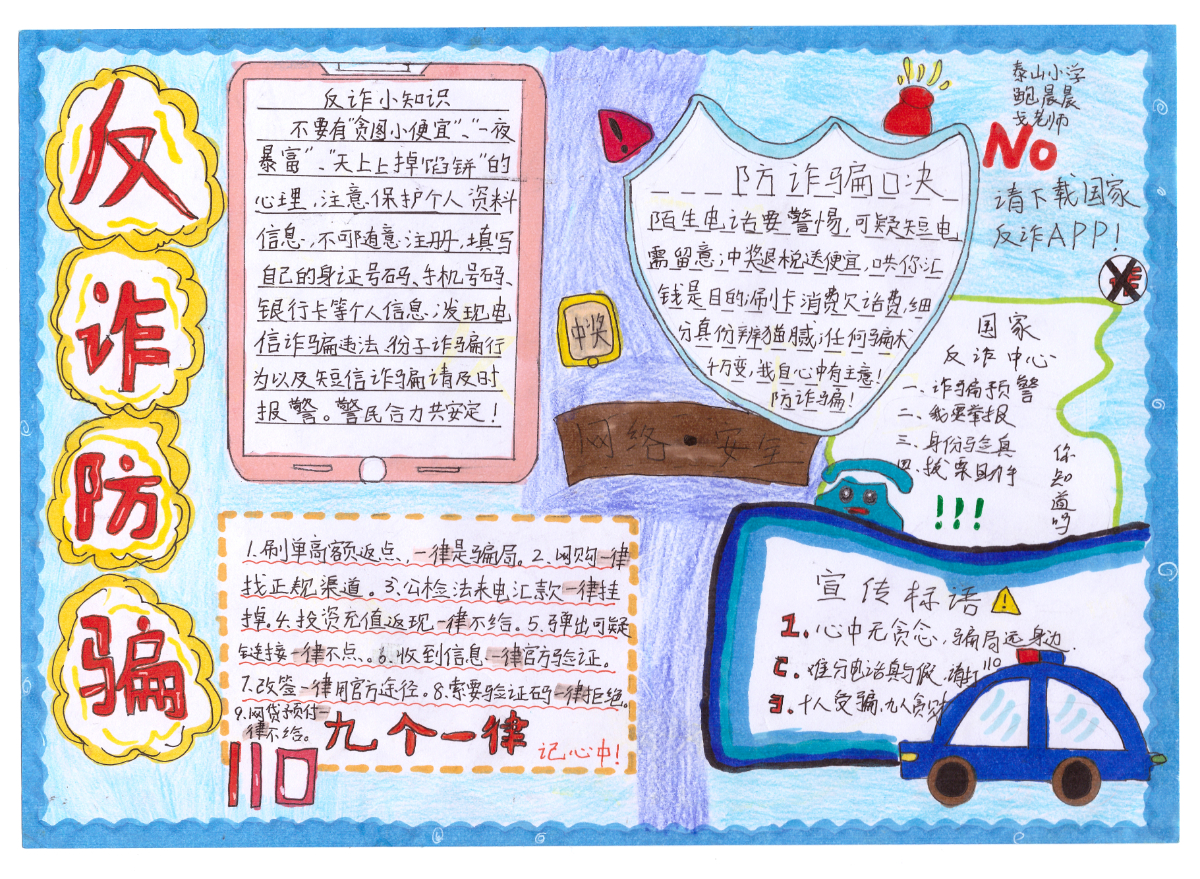 反
诈
防
骗
反诈小知识
不要有"贪图小便宜"、"一夜
暴富"、"天上上掉馅饼"的
心理,注意保护个人资料
信息,不可随意注册,填写
自己的身证号码、手机号码、
银行卡等个人信息,发现电
信诈骗违法、份子诈骗行
为以及短信诈骗请及时
报警。警民合力共安定!
中奖
网络·安全
防诈骗口决
陌生电话要警惕,可疑短电
需留意;中奖退税送便宜,哄你汇
钱是目的;刷卡消费欠话费,细
分真份辨猫腻;任何骗术
千万变,我自心中有主意!
防诈骗!
泰山小学
鲍晨晨
戈老师
NO
请下载国家
反诈APP!
国家
反诈中心
一、诈骗预警
二、我要举报
三、身份验真
四、
你
知
道
吗
!!!
1.刷单高额返点、一律是骗局。2、网购一律
找正规渠道。3、公检法来电汇款一律挂
掉。4.投资充值返现一律不给。5.弹出可疑
链接一律不点、。6.收到信息一律官方验证。
7.改签一律用官方途径。8.索要验证码一律拒绝。
9.网贷预付一
律不给。
九个一律
记心中!
110
宣传标语
1.心中无贪念,骗局远身边.
2.难分电话真与假、请打110
3.十人受骗、九人贪财